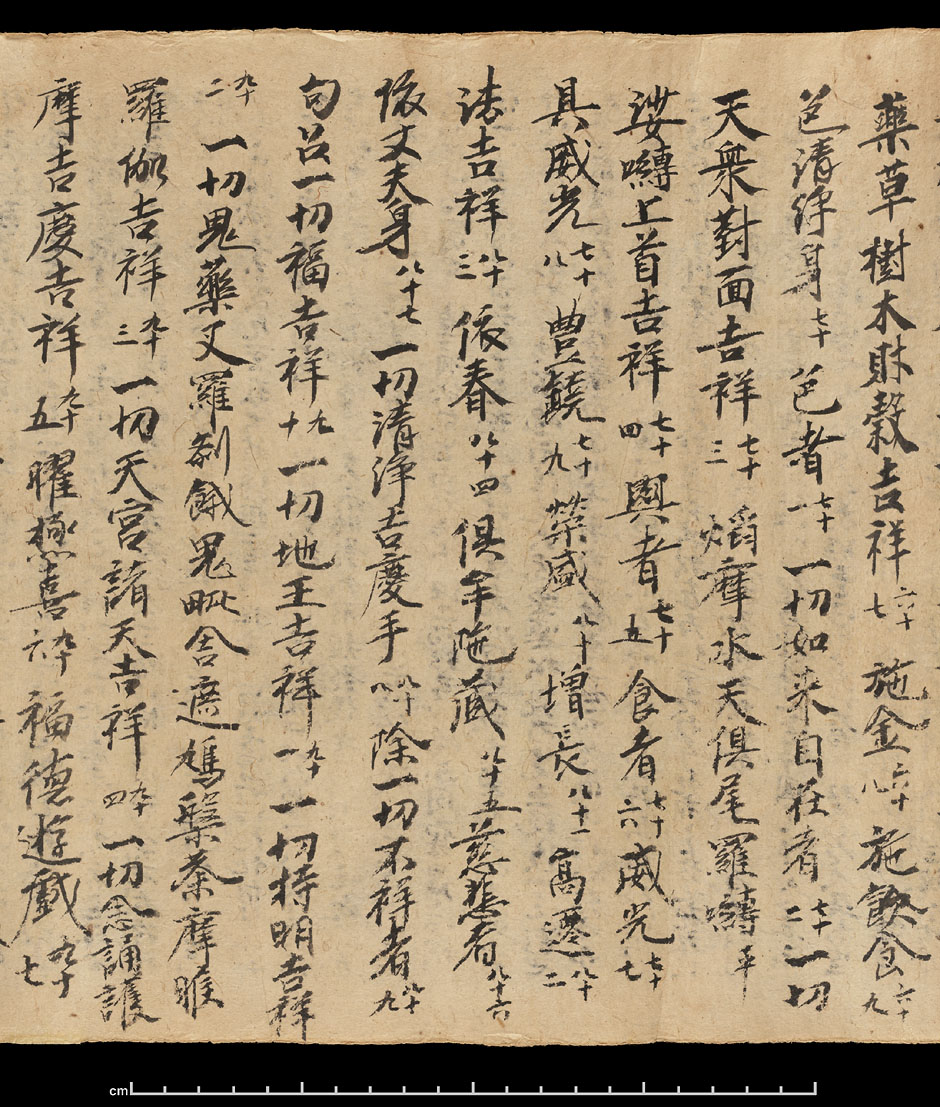 藥草樹木財穀吉祥六十七施金六十八施飲食六十九
芭清淨身七十芭者七十一一切如来自在者七十二一切
天衆對面吉祥七十三焰摩水天俱尾羅嚩平
娑嚩上首吉祥七十四與者七十五食者七十六威光七十七
具威光七十八豊饒七十九榮盛八十增長八十一高遷八十二
法吉祥八十三依春八十四俱牟陁藏八十五慈悲者八十六
依丈夫身八十七一切清淨吉慶手八十八除一切不祥者八十九
句召一切福吉祥九十一切地王吉祥九十一一切持明吉祥
九十二一切鬼藥叉羅剎餓鬼毗舍遮鳩槃荼摩睺
羅伽吉祥九十三一切天宮諸天吉祥九十四一切念誦護
摩吉慶吉祥九十五曜極喜九十六福德遊戲九十七